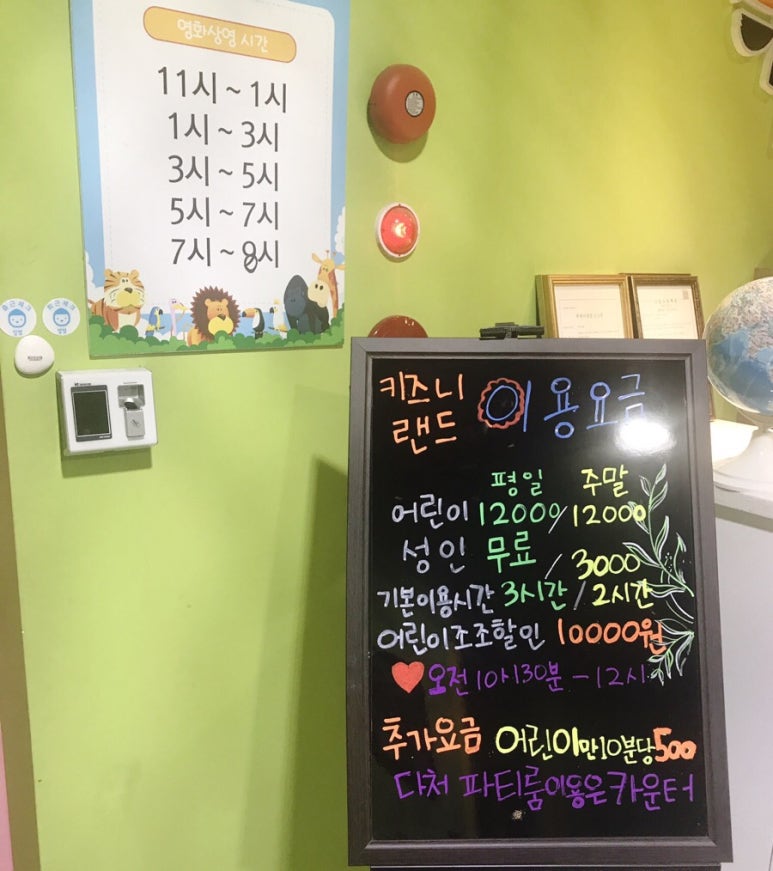 영화상영 시간
11시 ~ 1시
1시 ~ 3시
3시 ~ 5시
5시 ~ 7시
7시 ~ 8시
출근체크
퇴근체크
키즈니
랜드 이용요금
평일 주말
어린이 12000/12000
성인 무료/3000
기본이용시간 3시간/2시간
어린이조조할인 10000원
오전10시30분-12시
추가요금 어린이만10분당500
단체 파티룸이용은카운터